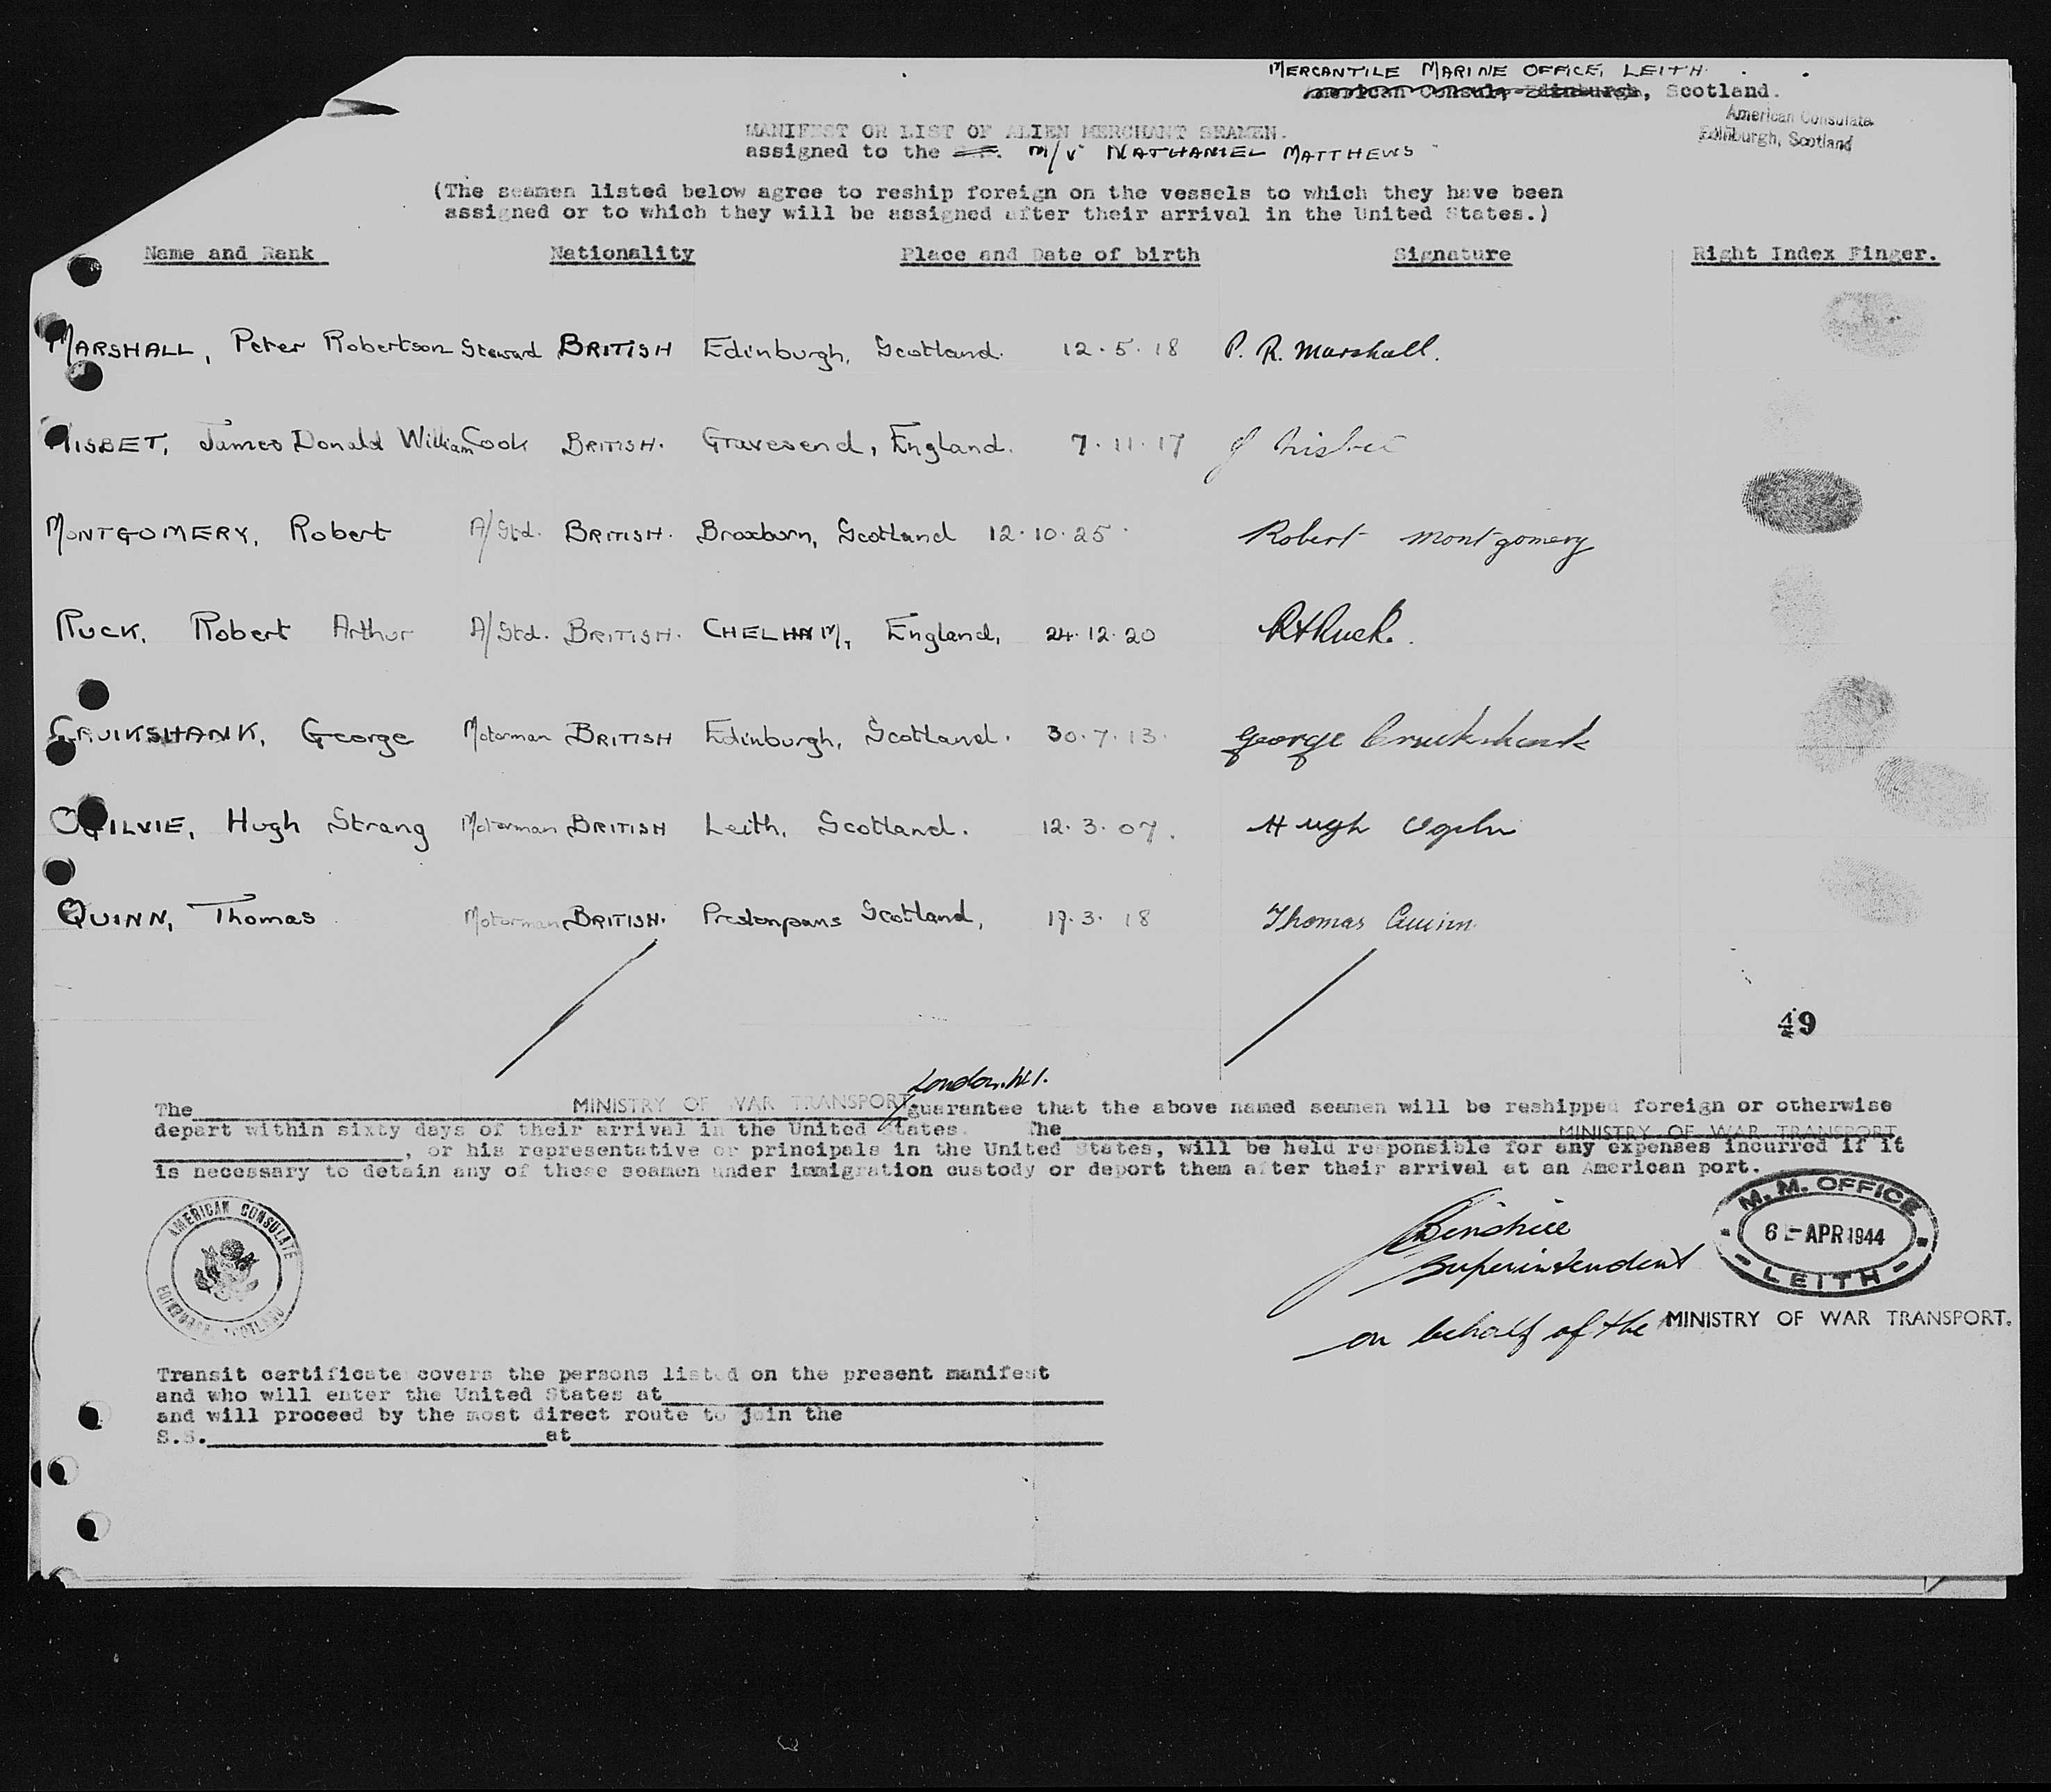 MERCANTILE MARINE OFFICE, LEITH.
American Consul, Edinburgh, Scotland.
American Consulate
Edinburgh, Scotland
MANIFEST OR LIST OF ALIEN MERCHANT SEAMEN.
assigned to the S.S. M/V NATHANIEL MATTHEWS
(The seamen listed below agree to reship foreign on the vessels to which they have been
assigned or to which they will be assigned after their arrival in the United States.)
Name and Rank Nationality Place and Date of birth Signature Right Index Finger.
MARSHALL, Peter Robertson Steward BRITISH Edinburgh, Scotland. 12.5.18 P. R. Marshall.
NISBET, James Donald William Cook BRITISH. Gravesend, England. 7.11.17 J Nisbet
MONTGOMERY, Robert A/Std. BRITISH. Broxburn, Scotland 12.10.25 Robert Montgomery
RUCK, Robert Arthur A/Std. BRITISH. England, 24.12.20 R A Ruck.
CRUIKSHANK, George Motorman BRITISH Edinburgh, Scotland. 30.7.13. George Cruikshank
OGILVIE, Hugh Strang Motorman BRITISH Leith, Scotland. 12.3.07. Hugh Ogilvie
QUINN, Thomas Motorman BRITISH. Prestonpans Scotland, 17.3.18 Thomas Quinn
49
London. W.1.
The MINISTRY OF WAR TRANSPORT guarantee that the above named seamen will be reshipped foreign or otherwise
depart within sixty days of their arrival in the United States. The MINISTRY OF WAR TRANSPORT
, or his representative or principals in the United States, will be held responsible for any expenses incurred if it
is necessary to detain any of these seamen under immigration custody or deport them after their arrival at an American port.
AMERICAN CONSULATE
EDINBURGH, SCOTLAND
M. M. OFFICE
6 - APR 1944
LEITH
Superintendent
on behalf of the MINISTRY OF WAR TRANSPORT.
Transit certificate covers the persons listed on the present manifest
and who will enter the United States at
and will proceed by the most direct route to join the
S.S. at